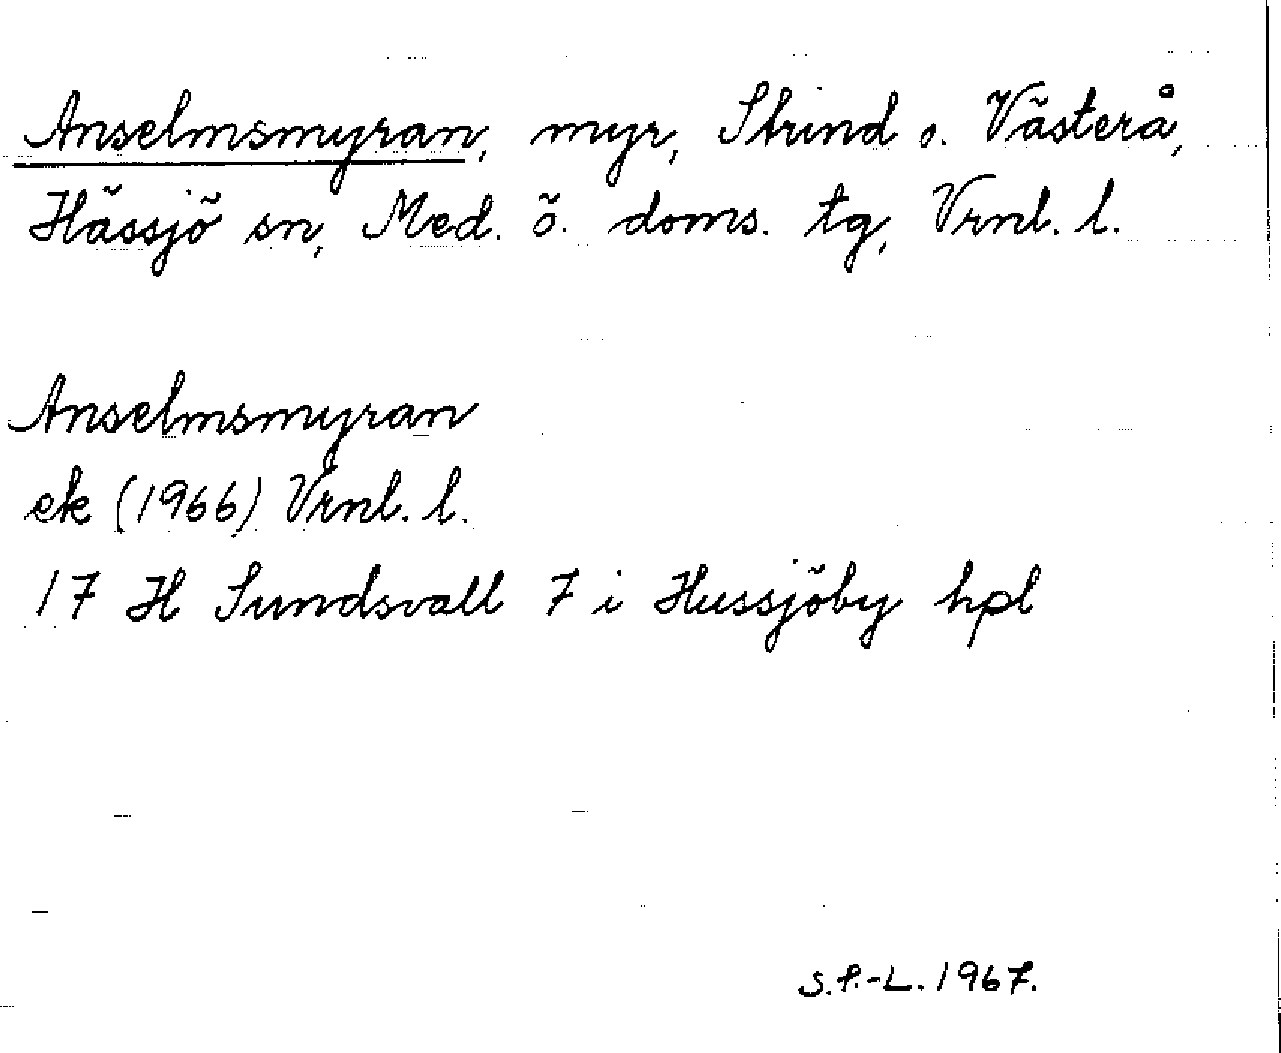 Anselmsmyran, myr, Strind o. Västerå,
Hässjö sn, Med. ö. doms. tg, Vrnl. l.
Anselmsmyran
ek (1966) Vrnl. l.
17 H Sundsvall 7 i Hussjöby hpl
S.P.-L. 1967.